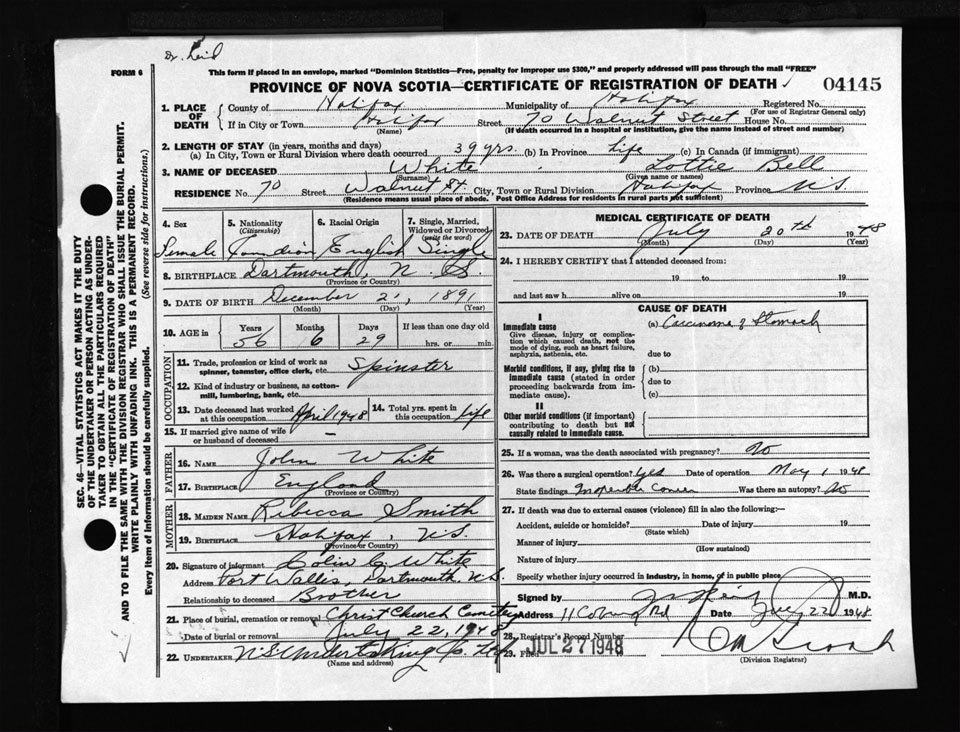 Dr. Reid
FORM 6
This form if placed in an envelope, marked "Dominion Statistics—Free, penalty for improper use $300," and properly addressed will pass through the mail "FREE"
PROVINCE OF NOVA SCOTIA—CERTIFICATE OF REGISTRATION OF DEATH
04145
1. PLACE OF DEATH
County of Halifax Municipality of Halifax Registered No.
(For use of Registrar General only)
If in City or Town Halifax Street 70 Walnut Street House No.
(Name) (If death occurred in a hospital or institution, give the name instead of street and number)
2. LENGTH OF STAY (in years, months and days)
(a) In City, Town or Rural Division where death occurred 39 yrs. (b) In Province Life (c) In Canada (if immigrant)
3. NAME OF DECEASED White Lottie Bell
(Surname) (Given name or names)
RESIDENCE No. 70 Street Walnut St. City, Town or Rural Division Halifax Province N.S.
(Residence means usual place of abode. Post Office Address for residents in rural parts not sufficient)
4. Sex 5. Nationality (Citizenship) 6. Racial Origin 7. Single, Married, Widowed or Divorced (write the word)
Female Canadian English Single
8. BIRTHPLACE Dartmouth, N. S.
(Province or Country)
9. DATE OF BIRTH December 21, 1891
(Month) (Day) (Year)
10. AGE in Years Months Days If less than one day old
56 6 29 hrs. or min.
OCCUPATION
11. Trade, profession or kind of work as spinner, teamster, office clerk, etc. Spinster
12. Kind of industry or business, as cotton-mill, lumbering, bank, etc.
13. Date deceased last worked at this occupation April 1948 14. Total yrs. spent in this occupation life
15. If married give name of wife or husband of deceased —
FATHER
16. NAME John White
17. BIRTHPLACE England
(Province or Country)
MOTHER
18. MAIDEN NAME Rebecca Smith
19. BIRTHPLACE Halifax, N.S.
(Province or Country)
20. Signature of informant Colin C. White
Address Port Wallis, Dartmouth, N.S.
Relationship to deceased Brother
21. Place of burial, cremation or removal Christ Church Cemetery
Date of burial or removal July 22, 1948
22. UNDERTAKER N.S. Undertaking Co. Ltd
(Name and address)
MEDICAL CERTIFICATE OF DEATH
23. DATE OF DEATH July 20th 1948
(Month) (Day) (Year)
24. I HEREBY CERTIFY that I attended deceased from:
19 to 19
and last saw h alive on 19
CAUSE OF DEATH
I
Immediate cause (a) Carcinoma of Stomach
Give disease, injury or complication which caused death, not the mode of dying, such as heart failure, asphyxia, asthenia, etc.
due to
Morbid conditions, if any, giving rise to immediate cause (stated in order proceeding backwards from immediate cause).
(b)
due to
(c)
II
Other morbid conditions (if important) contributing to death but not causally related to immediate cause.
25. If a woman, was the death associated with pregnancy? No
26. Was there a surgical operation? Yes Date of operation May 1 1948
State findings Inoperable Cancer Was there an autopsy? No
27. If death was due to external causes (violence) fill in also the following:—
Accident, suicide or homicide? Date of injury 19
(State which)
Manner of injury
(How sustained)
Nature of injury
Specify whether injury occurred in industry, in home, or in public place
Signed by M.D.
Address 11 Coburg Rd Date July 22 1948
28. Registrar's Record Number
29. Filed JUL 27 1948
(Division Registrar)
SEC. 46—VITAL STATISTICS ACT MAKES IT THE DUTY
OF THE UNDERTAKER OR PERSON ACTING AS UNDER-
TAKER TO OBTAIN ALL THE PARTICULARS REQUIRED
IN THE "CERTIFICATE OF REGISTRATION OF DEATH"
AND TO FILE THE SAME WITH THE DIVISION REGISTRAR WHO SHALL ISSUE THE BURIAL PERMIT.
WRITE PLAINLY WITH UNFADING INK. THIS IS A PERMANENT RECORD.
Every item of information should be carefully supplied. (See reverse side for instructions.)